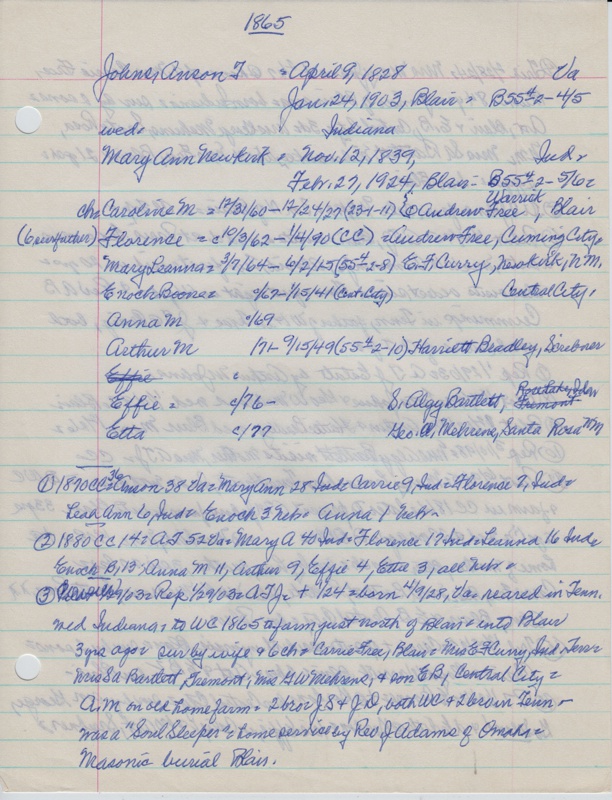 1865
Johns, Anson T = April 9, 1828 Va
Jan. 24, 1903, Blair = B55#2-4/5
wed = Indiana
Mary Ann Newkirk = Nov. 12, 1839, Ind =
Febr. 27, 1924, Blair - B55#2-5/6 =
Warrick
ch = Caroline M = 12/31/60 - 12/24/27 (23-1-11) Andrew Free - Blair
Florence = c 10/3/62 - 1/4/90 (CC) = Andrew Free, Cuming City,
Mary Leanna = 3/7/64 - (55#2-8) E.F. Curry, Newkirk, N.M.
Enoch Boone = c/67 - 1/15/41 (Cent. City) Central City,
Anna M c/69
Arthur M 71 - 9/15/49 (55#2-10) Harriett Bradley, Scribner
Effie c
Effie = c/76 - S. Algy Bartlett, Fremont
Etta c/77 Geo. W. Mehrens, Santa Rosa NM
① 1870 CC = Anson 38 Va = Mary Ann 28 Ind = Carrie 9, Ind = Florence 7, Ind =
Ann 6, Ind = Enoch 3 Neb = Anna 1 Neb =
② 1880 CC 14 = A.T 52 Va = Mary A 40 Ind = Florence 17 Ind = Leanna 16 Ind =
Enoch B, 13 = Anna M 11, Arthur 9, Effie 4, Etta 3, all Neb =
③ Rep 1/29/03 = A T J = + 1/24 = born 4/9/28, Va = reared in Tenn.
wed Indiana = to WC 1865 = farm just north of Blair = into Blair
3 yrs ago = sur by wife & 6 ch = Carrie Free, Blair = Mrs E F Curry, Ind. Terr =
Mrs S A Bartlett, Fremont; Mrs G W Mehrens, & son E B, Central City =
A.M on old home farm = 2 bro J S & J D, both WC + 2 bro in Tenn -
was a "Soul Sleeper" = home service by Rev J Adams of Omaha =
Masonic burial Blair.